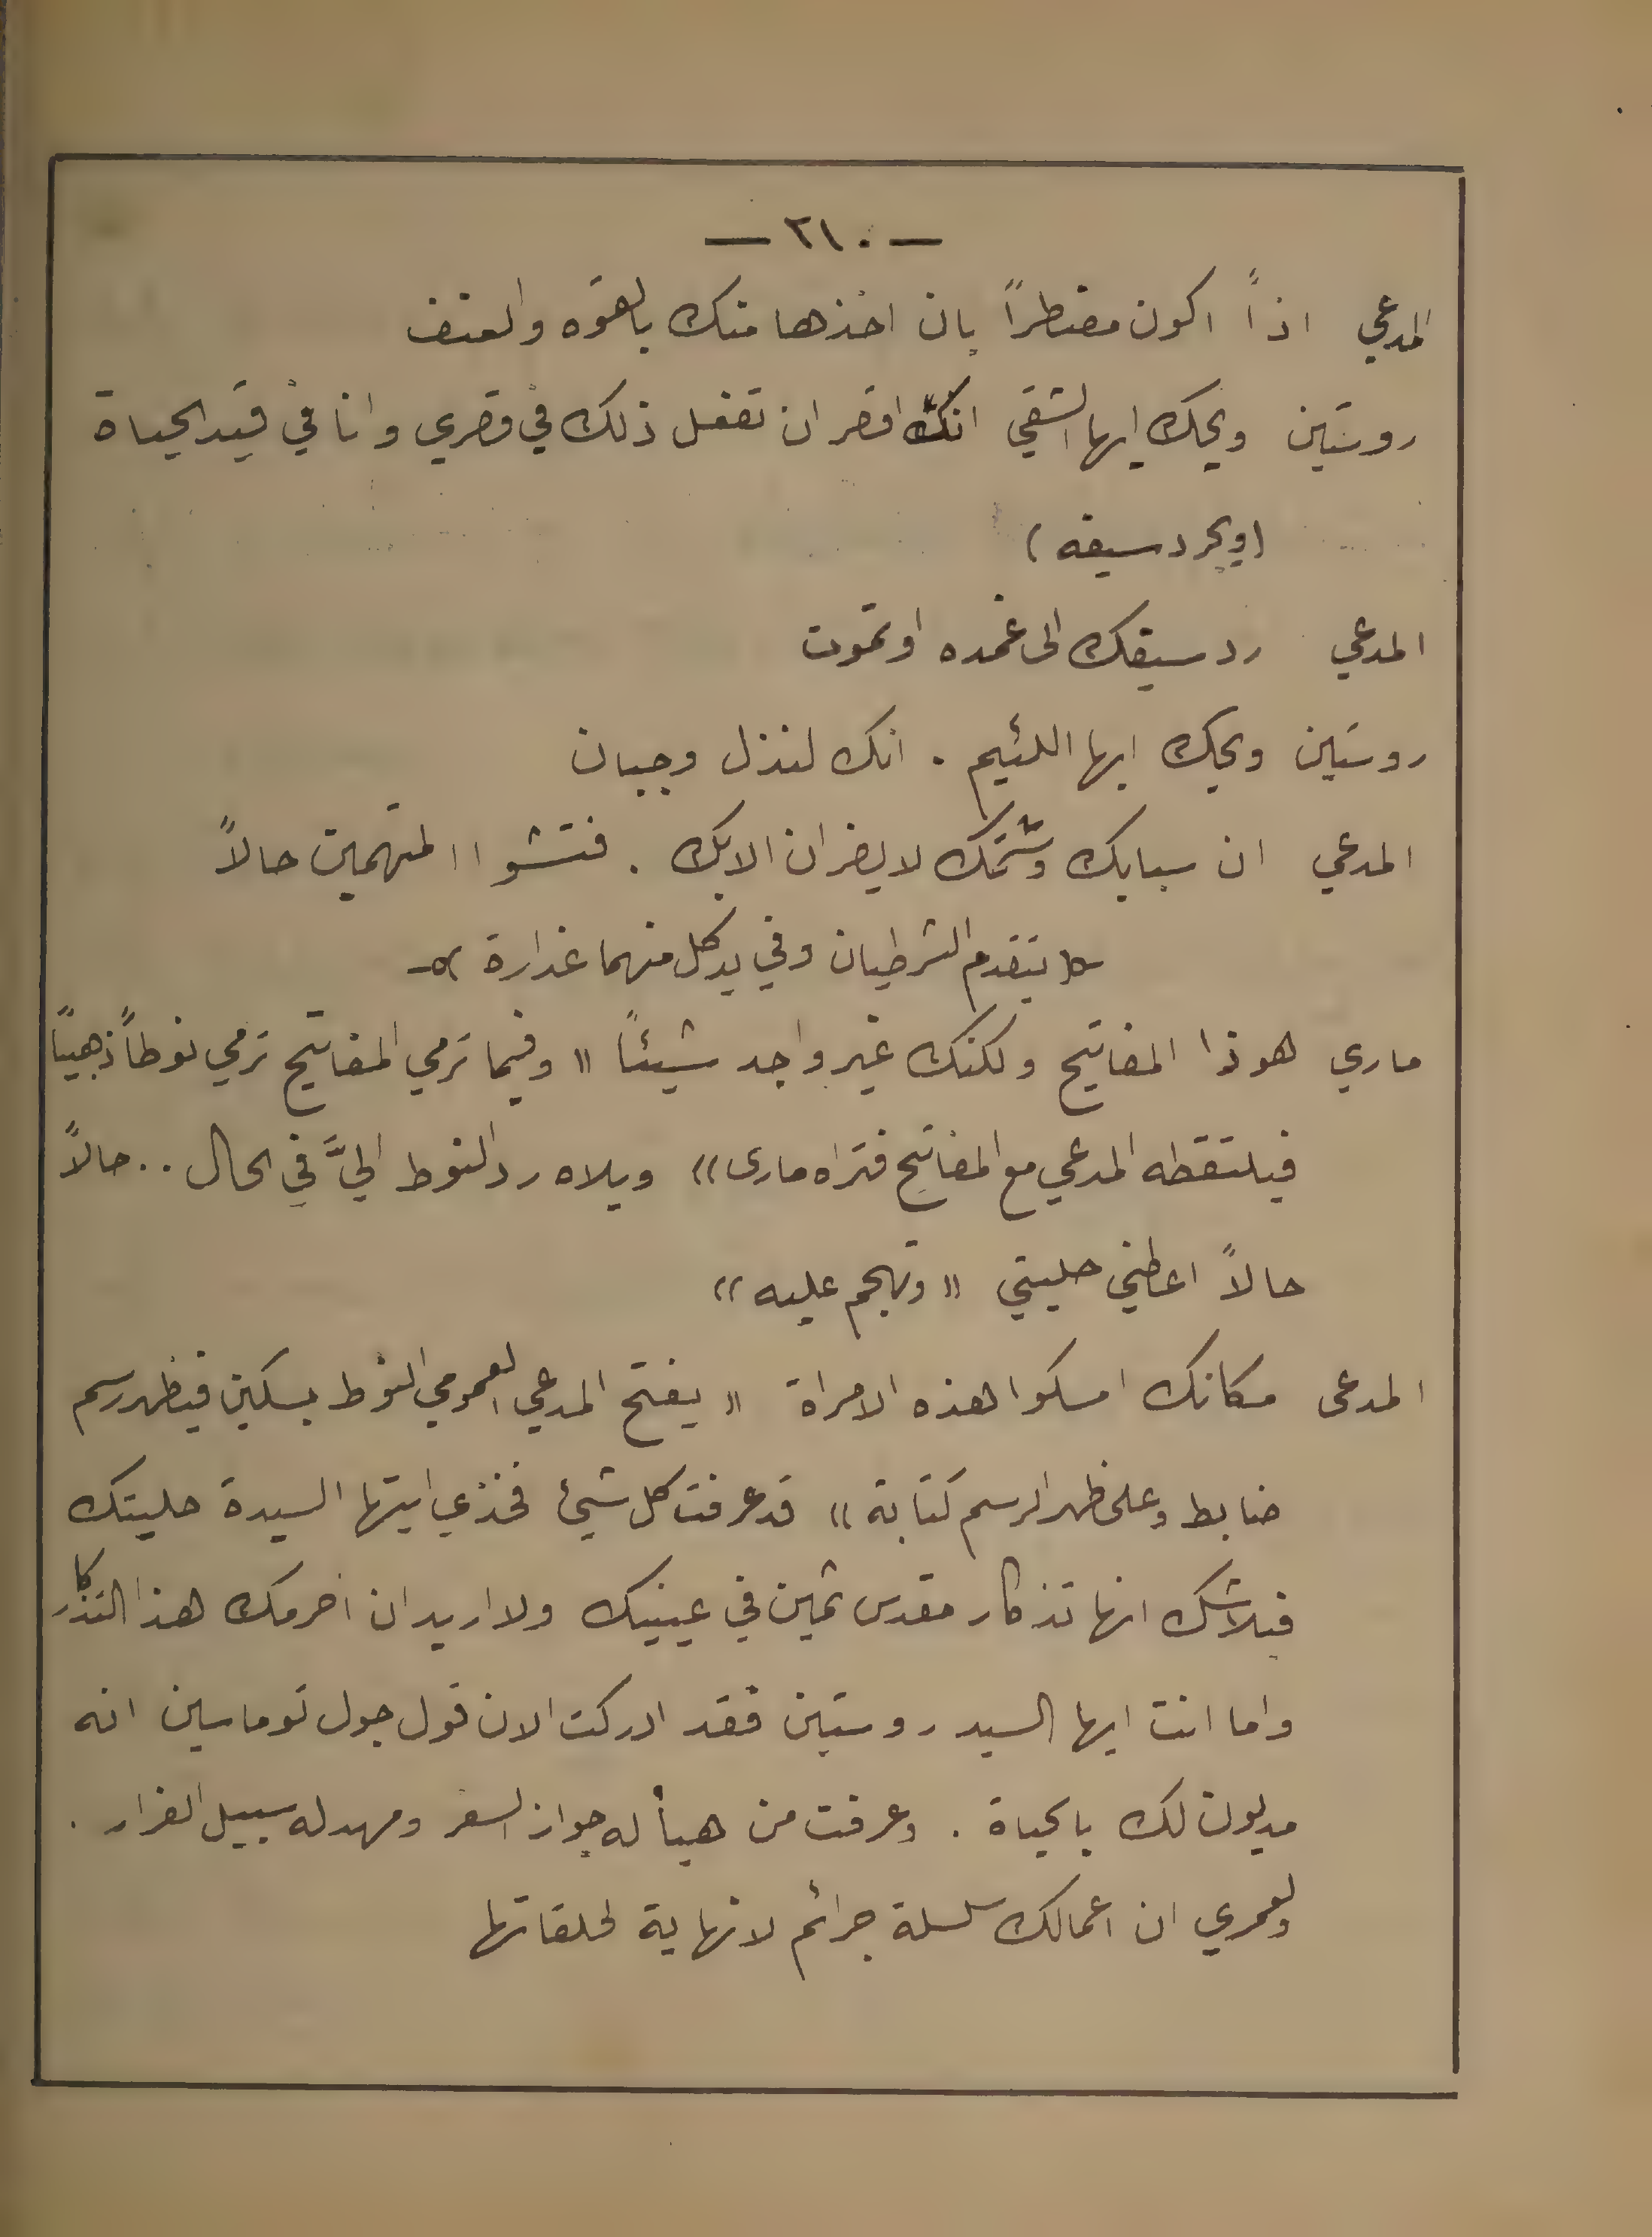 — ٢١٠ —
المدعي اذاً اكون مضطراً بان اخذها منك بالقوه والعنف
روستين ويحك ايها الشقي انك اقصر ان تفعل ذلك في قصري وانا في قيد الحياة
(ويجرد سيفه)
المدعي رد سيفك الى غمده او تموت
روستين ويحك ايها اللئيم . انك لنذل وجبان
المدعي ان سبابك وشتمك لا يضران الا بك . فتشوا المتهمين حالاً
(يتقدم الشرطيان وفي يد كل منهما غدارة)
ماري هوذا المفاتيح ولكنك غير واجد شيئاً «وفيما ترمي المفاتيح ترمي نوطاً ذهبياً
فيلتقطه المدعي مع المفاتيح فتراه ماري» ويلاه رد النوط اليَّ في الحال .. حالاً
حالاً اعطني حليتي «وتهجم عليه»
المدعى مكانك امسكوا هذه الامراة «يفتح المدعي العمومي النوط بسكين فيظهر رسم
ضابط وعلى ظهر الرسم كتابة» قد عرفت كل شيئ فخذي ايتها السيدة حليتك
فبلا شك انها تذكار مقدس ثمين في عينيك ولا اريد ان احرمك هذا التذكار
واما انت ايها السيد روستين فقد ادركت الان قول جول توماسين انه
مديون لك بالحياة . وعرفت من هيأ له جواز السفر ومهد له سبيل الفرار .
ولعمري ان اعمالك سلسلة جرائم لا نهاية لحلقاتها